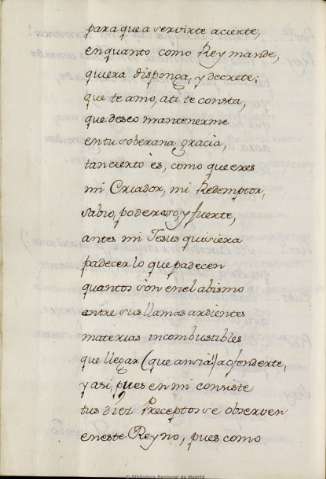 para que a servirte acierte,
en quanto como Rey mande,
quiera disponga, y decrete;
que te amo, a ti te consta,
que deseo mantenerme
en tu soberana gracia,
tan cierto es, como que eres
mi Criador, mi Redemptor,
sabio, poderoso y fuerte,
antes mi Jesus quisiera
padecer lo que padecen
quantos son en el abismo
entre sus llamas ardientes
materias incombustibles
que llegar (que ansia!) a ofenderte,
y asi, pues en mi consiste
tus diez Preceptos se observen
en este Reyno, pues como
© Biblioteca Nacional de Madrid